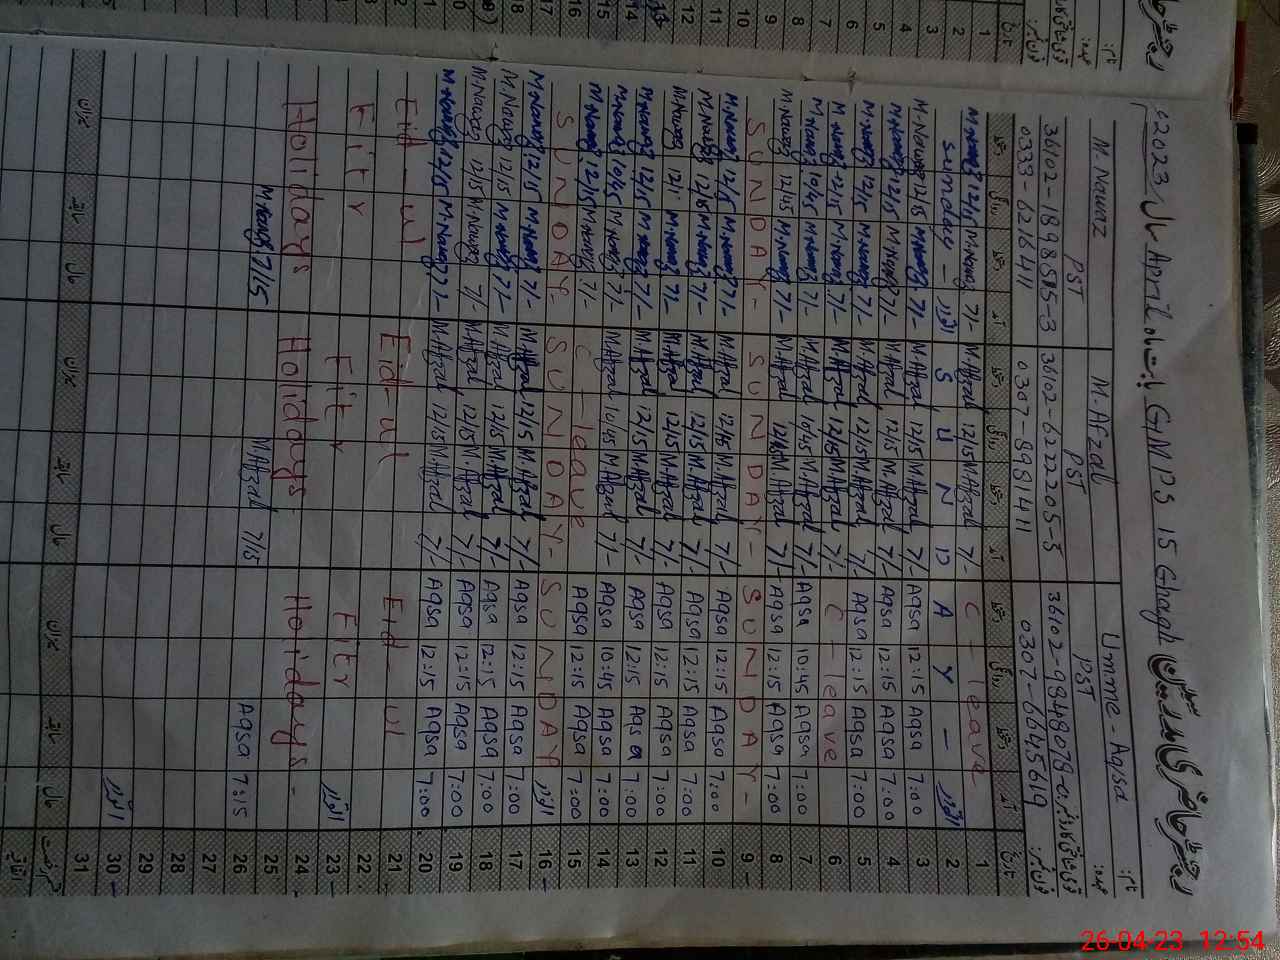 رجسٹر حاضری مدرسین GMPS 15 Ghagh بابت ماہ April سال 2023ء
نام: Umme-Aqsa M.Afzal M.Nawaz
عہدہ: PST PST PST
36102-9848078-0 36102-6222205-5 36102-1898515-3
فون نمبر: 0307-6645619 0307-8981411 0333-6216411
تاریخ آمد دستخط روانگی دستخط آمد دستخط روانگی دستخط آمد دستخط روانگی دستخط
1 C-leave 7/- M.Afzal 12/15 M.Afzal 7/- M.Nawaz 12/15 M.Nawaz
2 اتوار - Y A D N U S اتوار - Sunday
3 7:00 Aqsa 12:15 Aqsa 7/- M.Afzal 12/15 M.Afzal 7/- M.Nawaz 12/15 M.Nawaz
4 7:00 Aqsa 12:15 Aqsa 7/- M.Afzal 12/15 M.Afzal 7/- M.Nawaz 12/15 M.Nawaz
5 7:00 Aqsa 12:15 Aqsa 7/- M.Afzal 12/15 M.Afzal 7/- M.Nawaz 12/15 M.Nawaz
6 C-leave 7/- M.Afzal 12/15 M.Afzal 7/- M.Nawaz 12/15 M.Nawaz
7 7:00 Aqsa 10:45 Aqsa 7/- M.Afzal 10/45 M.Afzal 7/- M.Nawaz 10/45 M.Nawaz
8 7:00 Aqsa 12:15 Aqsa 7/- M.Afzal 12/15 M.Afzal 7/- M.Nawaz M.Nawaz
9 SUNDAY- SUNDAY- SUNDAY-
10 7:00 Aqsa 12:15 Aqsa 7/- M.Afzal 12/15 M.Afzal 7/- M.Nawaz 12/15 M.Nawaz
11 7:00 Aqsa 12:15 Aqsa 7/- M.Afzal 12/15 M.Afzal 7/- M.Nawaz 12/15 M.Nawaz
12 7:00 Aqsa 12:15 Aqsa 7/- M.Afzal 12/15 M.Afzal 7/- M.Nawaz M.Nawaz
13 7:00 Aqsa 12:15 Aqsa 7/- M.Afzal 12/15 M.Afzal 7/- M.Nawaz 12/15 M.Nawaz
14 7:00 Aqsa 10:45 Aqsa 7/- M.Afzal 10/45 M.Afzal 7/- M.Nawaz 10/45 M.Nawaz
15 7:00 Aqsa 12:15 Aqsa C-leave 7/- M.Nawaz 12/15 M.Nawaz
16 اتوار SUNDAY SUNDAY- SUNDAY-
17 7:00 Aqsa 12:15 Aqsa 7/- M.Afzal 12/15 M.Afzal 7/- M.Nawaz 12/15 M.Nawaz
18 7:00 Aqsa 12:15 Aqsa 7/- M.Afzal 12/15 M.Afzal 7/- M.Nawaz 12/15 M.Nawaz
19 7:00 Aqsa 12:15 Aqsa 7/- M.Afzal 12/15 M.Afzal 7/- M.Nawaz 12/15 M.Nawaz
20 7:00 Aqsa 12:15 Aqsa 7/- M.Afzal 12/15 M.Afzal 7/- M.Nawaz 12/15 M.Nawaz
21 Eid-ul Eid-ul Eid-ul
22
23 اتوار Fitr Fitr Fitr
24 Holidays Holidays Holidays
25
26 7:15 Aqsa 7/15 M.Afzal 7/15 M.Nawaz
27
28
29
30 اتوار
31
26-04-23 12:54